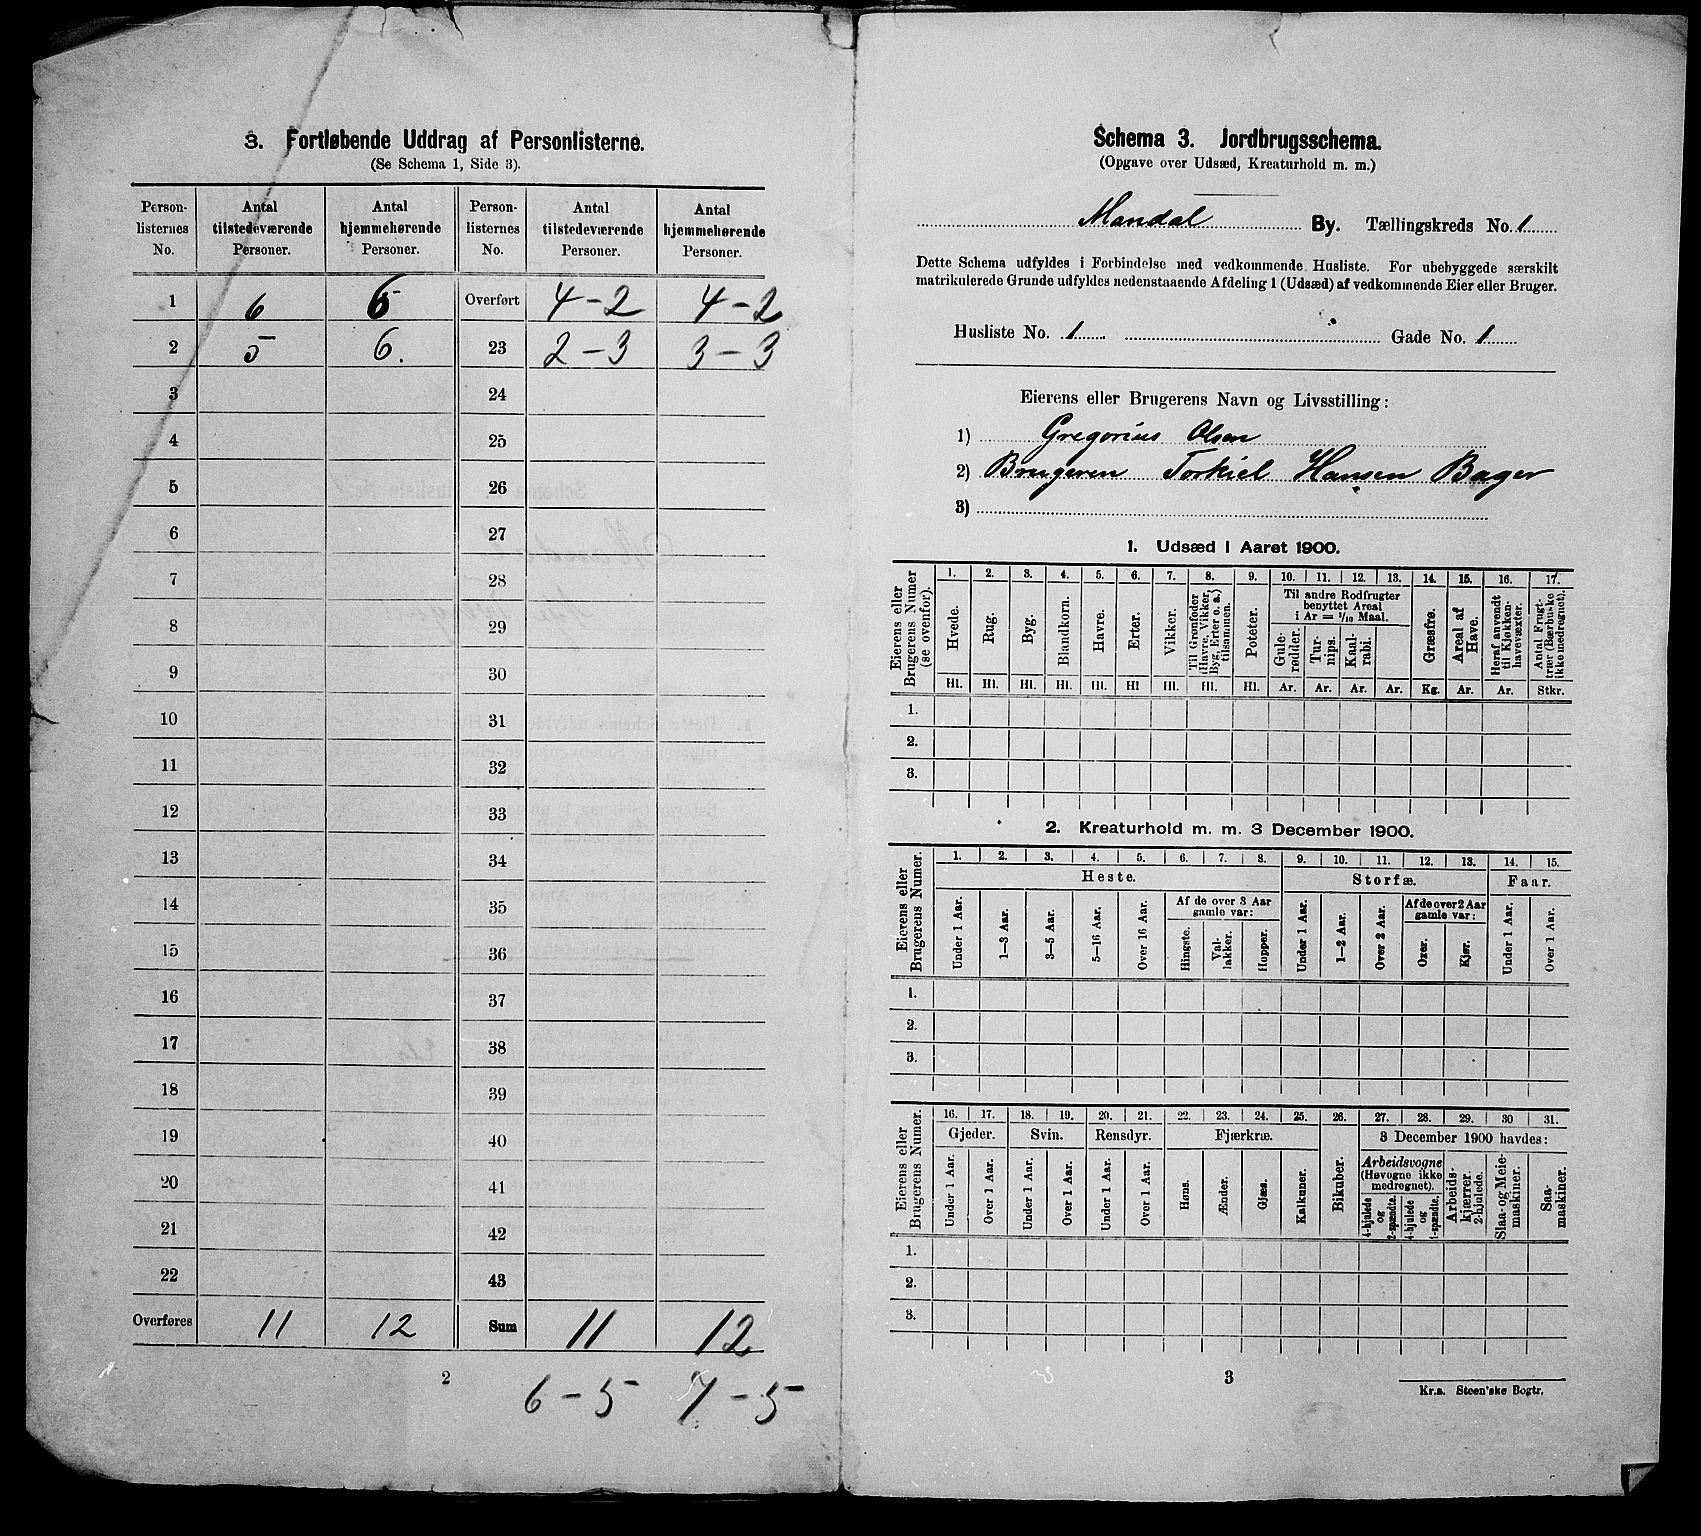 3. Fortløbende Uddrag af Personlisterne.
(Se Schema 1, Side 3).
Person-listernes No. | Antal tilstedeværende Personer. | Antal hjemmehørende Personer. | Person-listernes No. | Antal tilstedeværende Personer. | Antal hjemmehørende Personer.
1 | 6 | 6 | Overført | 4-2 | 4-2
2 | 5 | 6. | 23 | 2-3 | 3-3
3 | 24
4 | 25
5 | 26
6 | 27
7 | 28
8 | 29
9 | 30
10 | 31
11 | 32
12 | 33
13 | 34
14 | 35
15 | 36
16 | 37
17 | 38
18 | 39
19 | 40
20 | 41
21 | 42
22 | 43
Overføres | 11 | 12 | Sum | 11 | 12
2
6-5 7-5
Schema 3. Jordbrugsschema.
(Opgave over Udsæd, Kreaturhold m. m.)
Mandal By. Tællingskreds No. 1
Dette Schema udfyldes i Forbindelse med vedkommende Husliste. For ubebyggede særskilt
matrikulerede Grunde udfyldes nedenstaaende Afdeling 1 (Udsæd) af vedkommende Eier eller Bruger.
Husliste No. 1 Gade No. 1
Eierens eller Brugerens Navn og Livsstilling:
1) Gregorius Olsen
2) Brugeren Torkiel Hansen Bager
3)
1. Udsæd i Aaret 1900.
Eierens eller Brugerens Numer (se ovenfor).
1. 2. 3. 4. 5. 6. 7. 8. 9. 10. 11. 12. 13. 14. 15. 16. 17.
Hvede. Rug. Byg. Blandkorn. Havre. Erter. Vikker. Til Grønfoder (Havre, Vikker, Byg, Erter o. a.) tilsammen. Poteter.
Til andre Rodfrugter
benyttet Areal
i Ar = 1/10 Maal.
Gulerødder. Turnips. Kaalrabi. Græsfrø. Areal af Have. Heraf anvendt til Kjøkkenhavevæxter. Antal Frugttrær (Bærbuske ikke medregnet).
Hl. Hl. Hl. Hl. Hl. Hl Hl. Hl. Hl. Ar. Ar. Ar. Ar. Kg. Ar. Ar. Stkr.
1.
2.
3.
2. Kreaturhold m. m. 3 December 1900.
Eierens eller Brugerens Numer.
1. 2. 3. 4. 5. 6. 7. 8. 9. 10. 11. 12. 13. 14. 15.
Heste. Storfæ. Faar.
Under 1 Aar. 1—3 Aar. 3—5 Aar. 5—16 Aar. Over 16 Aar.
Af de over 3 Aar gamle var:
Hingste. Vallakker. Hopper.
Under 1 Aar. 1—2 Aar. Over 2 Aar.
Af de over 2 Aar gamle var:
Oxer. Kjør.
Under 1 Aar. Over 1 Aar.
1.
2.
3.
Eierens eller Brugerens Numer.
16. 17. 18. 19. 20. 21. 22. 23. 24. 25. 26. 27. 28. 29. 30 31.
Gjeder. Svin. Rensdyr. Fjærkræ. Bikuber. 3 December 1900 havdes:
Under 1 Aar. Over 1 Aar. Under 1 Aar. Over 1 Aar. Under 1 Aar. Over 1 Aar. Høns. Ænder. Gjæs. Kalkuner.
Arbeidsvogne
(Høvogne ikke
medregnet).
4-hjulede og 2-spændte. 4-hjulede og 1-spændte. Arbeidskjærrer. 2-hjulede. Slaa- og Meiemaskiner. Saamaskiner.
1.
2.
3.
3
Kr.a. Steen'ske Bogtr.